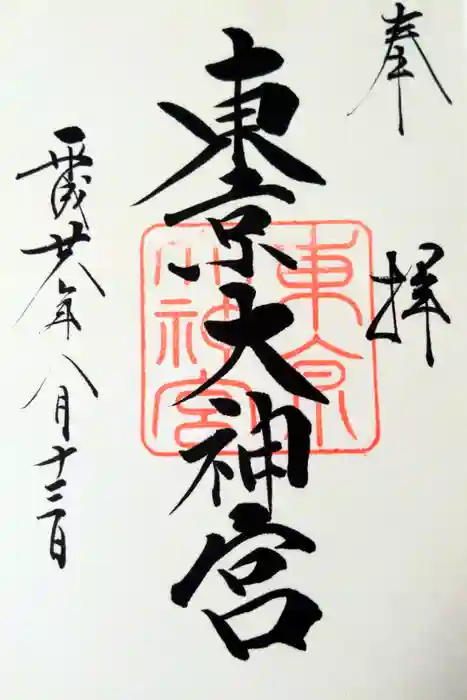 奉
拝
東京大神宮
東京
大神宮
平成廿八年八月十三日